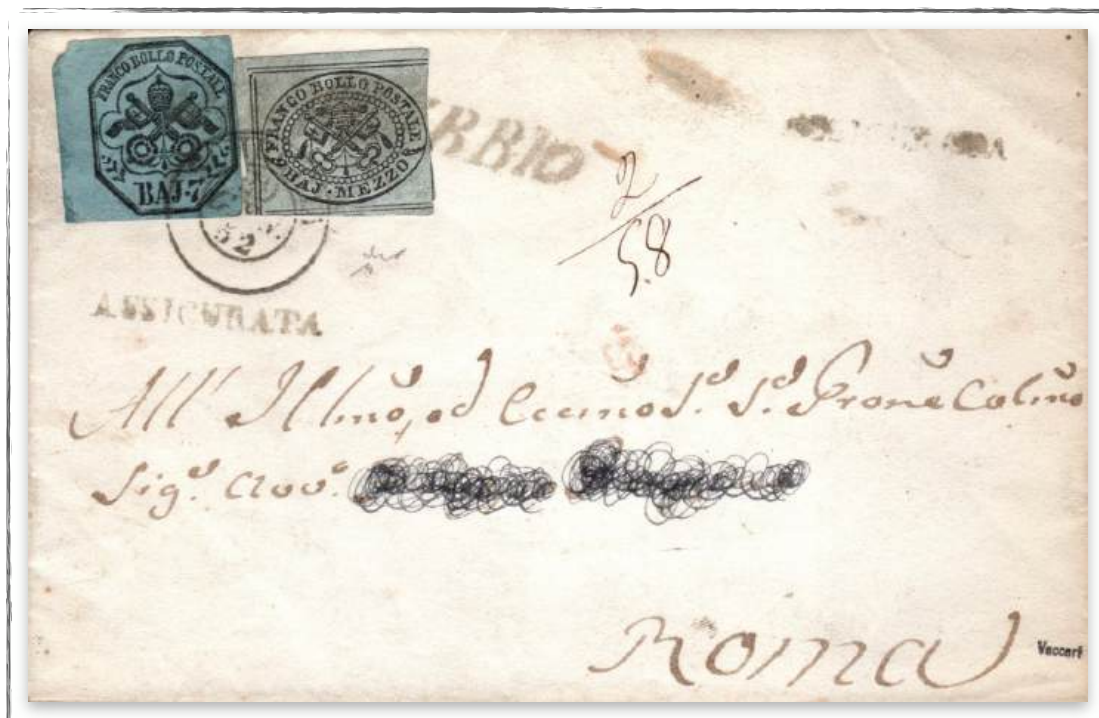 FRANCO BOLLO POSTALE
BAJ·7
FRANCO BOLLO POSTALE
BAJ·MEZZO
BBIO
52
2
58
ASSICURATA
All' Illmo, ed Eccmo
Sigr. Avv.
Roma
Vaccari